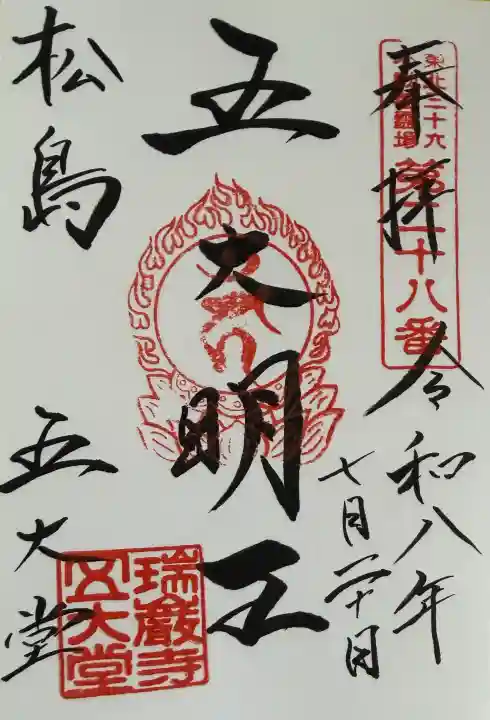 奉拝
令和八年
七月二十日
東北三十六
不動尊霊場
第二十八番
五大明王
松島
五大堂
瑞巌寺
五大堂